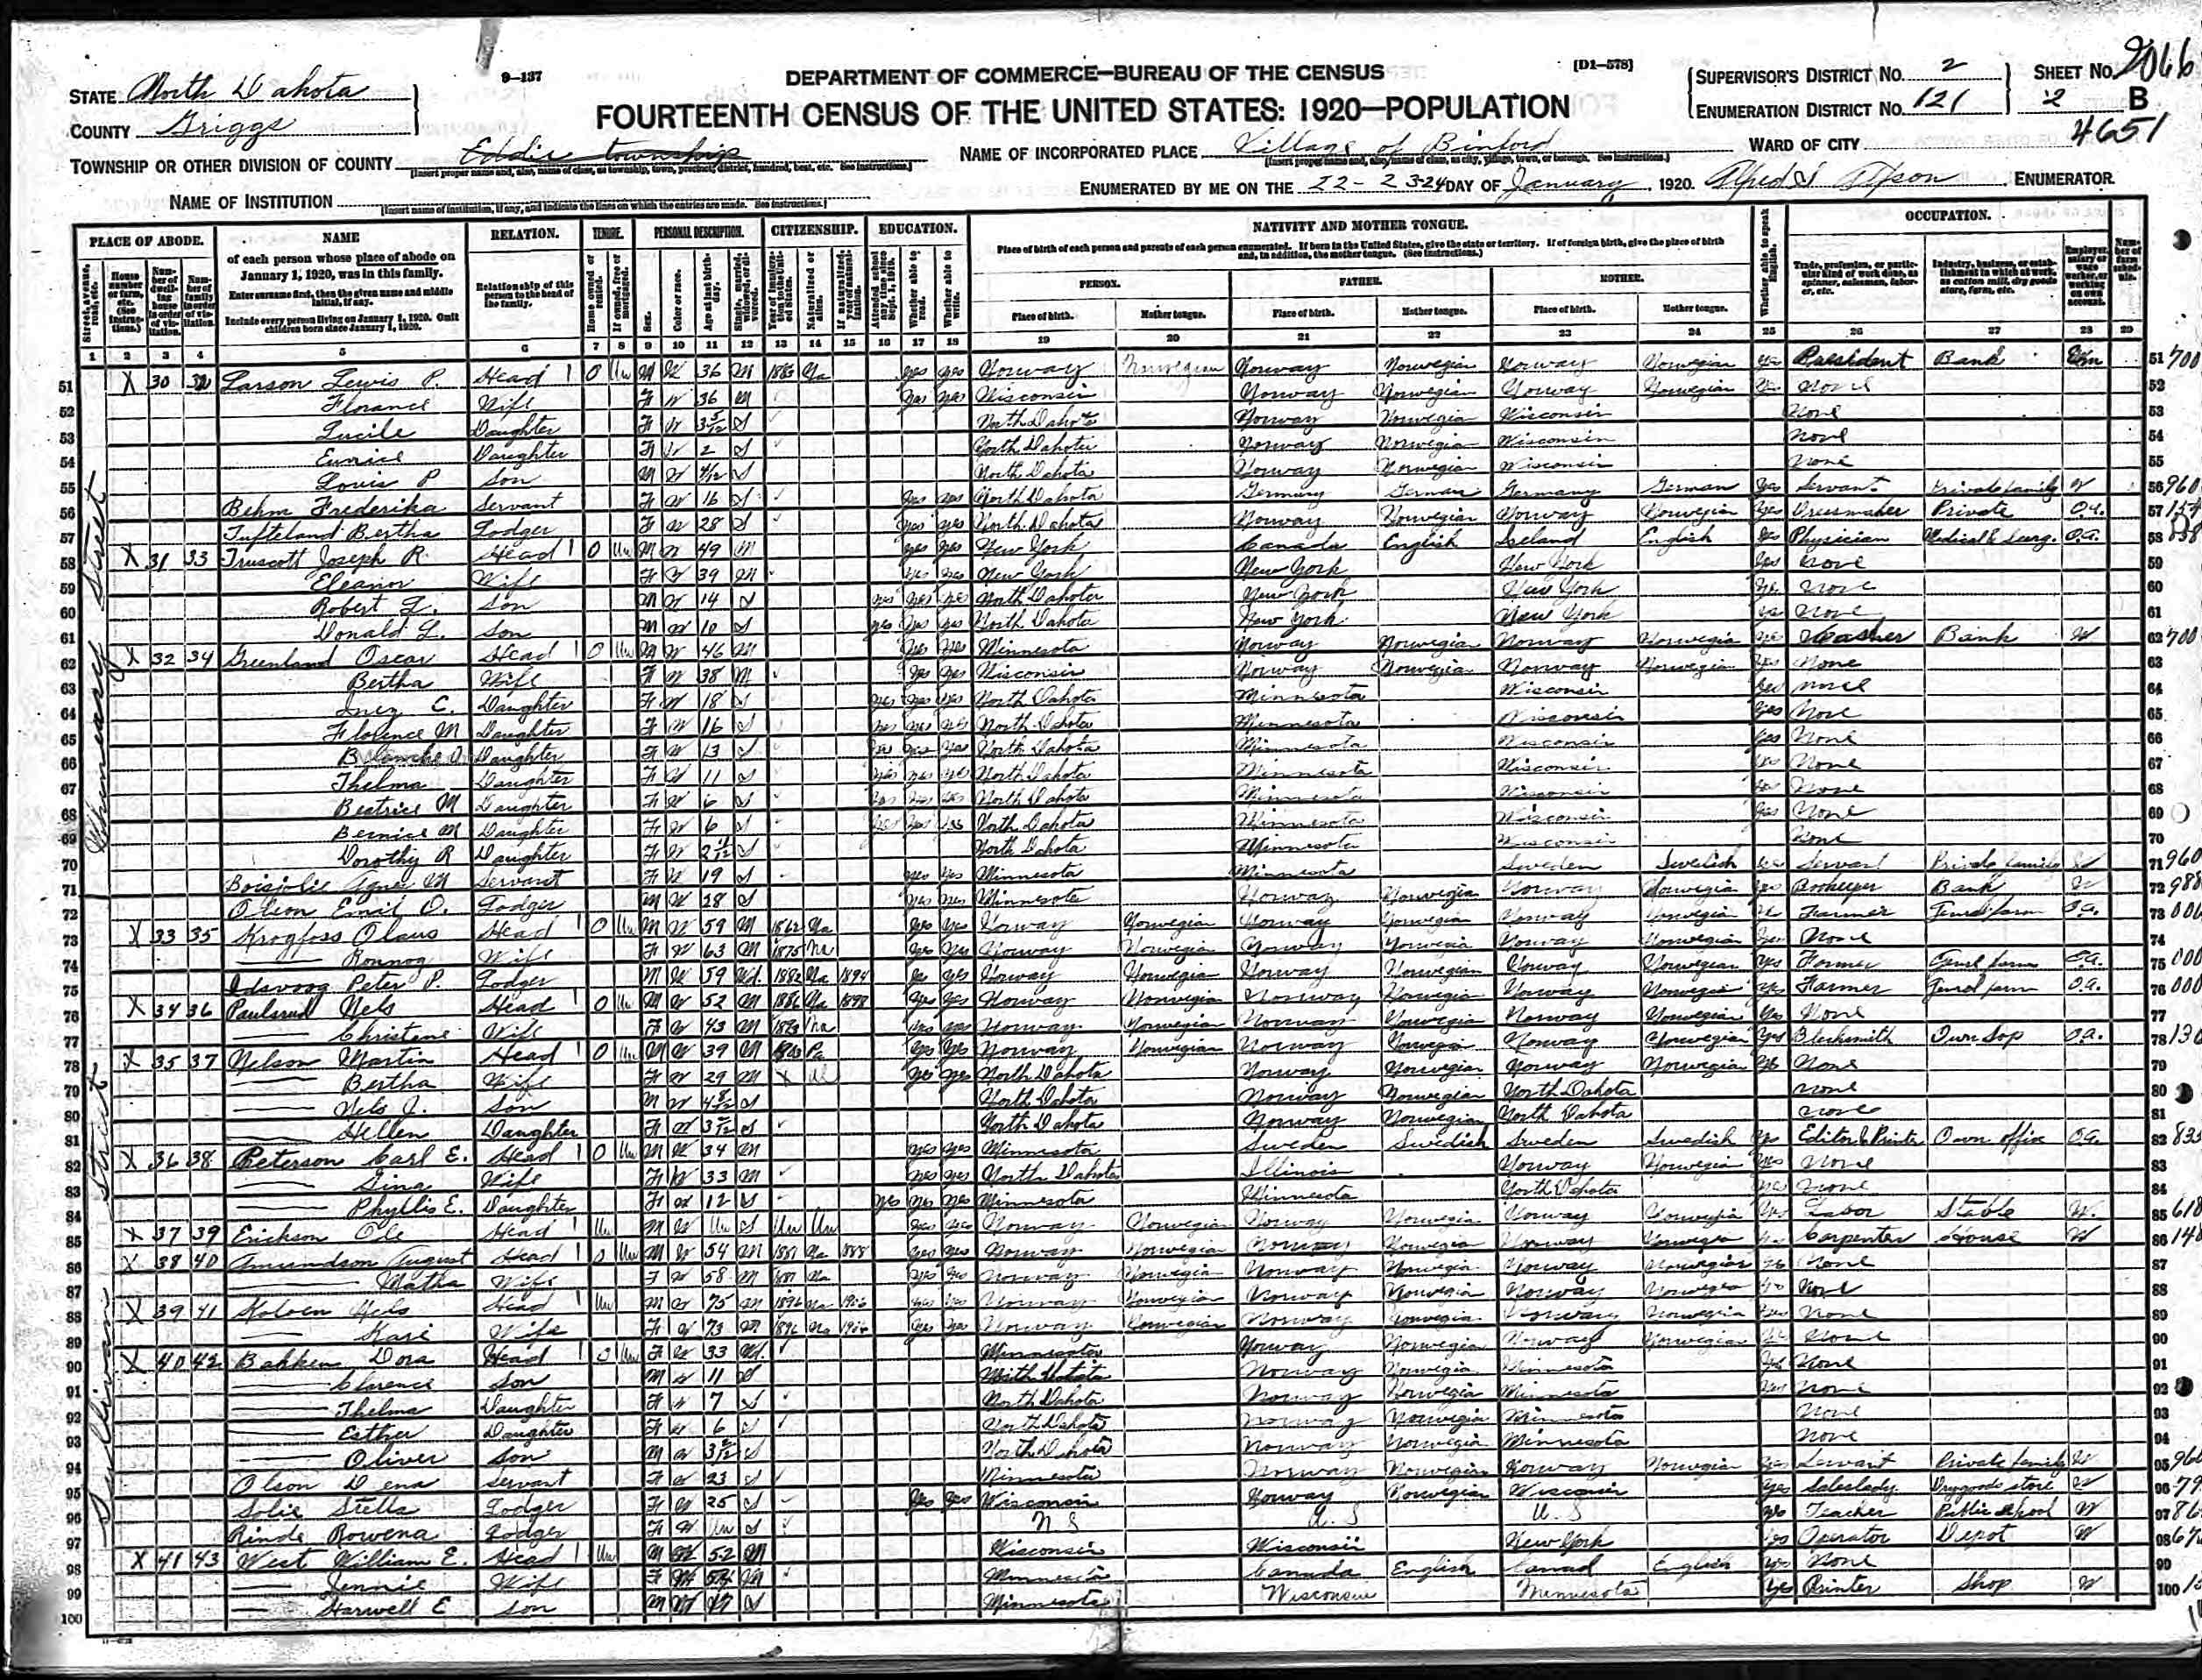 9-137
[D1-578]
DEPARTMENT OF COMMERCE—BUREAU OF THE CENSUS
FOURTEENTH CENSUS OF THE UNITED STATES: 1920—POPULATION
STATE North Dakota
COUNTY Griggs
SUPERVISOR'S DISTRICT No. 2
ENUMERATION DISTRICT No. 121
SHEET No. 2 B
2066
4651
TOWNSHIP OR OTHER DIVISION OF COUNTY Eddie township
NAME OF INCORPORATED PLACE Village of Binford
WARD OF CITY
NAME OF INSTITUTION
ENUMERATED BY ME ON THE 22-23-24 DAY OF January, 1920. ENUMERATOR
PLACE OF ABODE. NAME RELATION. TENURE. PERSONAL DESCRIPTION. CITIZENSHIP. EDUCATION. NATIVITY AND MOTHER TONGUE. OCCUPATION.
of each person whose place of abode on January 1, 1920, was in this family.
Enter surname first, then the given name and middle initial, if any.
Include every person living on January 1, 1920. Omit children born since January 1, 1920.
Relationship of this person to the head of the family.
Place of birth of each person and parents of each person enumerated. If born in the United States, give the state or territory. If of foreign birth, give the place of birth and, in addition, the mother tongue. (See Instructions.)
PERSON. FATHER. MOTHER.
Place of birth. Mother tongue. Place of birth. Mother tongue. Place of birth. Mother tongue.
1 2 3 4 5 6 7 8 9 10 11 12 13 14 15 16 17 18 19 20 21 22 23 24 25 26 27 28 29
51 X 30 32 Larson Lewis P. Head 1 O Un M W 36 M Na yes yes Norway Norwegian Norway Norwegian Norway Norwegian yes President Bank Em 51 700
52 Florance Wife F W 36 M yes yes Wisconsin Norway Norwegian Norway Norwegian yes None 52
53 Lucile Daughter F W 3 5/12 S North Dakota Norway Norwegian Wisconsin None 53
54 Eunice Daughter F W 2 S North Dakota Norway Norwegian Wisconsin None 54
55 Louis P Son M W 4/12 S North Dakota Norway Norwegian Wisconsin None 55
56 Behm Frederika Servant F W 16 S yes yes North Dakota Germany German Germany German yes Servant Private family W 56 960
57 Tufteland Bertha Lodger F W 28 S yes yes North Dakota Norway Norwegian Norway Norwegian yes Dressmaker Private O.A. 57
58 X 31 33 Truscott Joseph R. Head 1 O Un M W 49 M yes yes New York Canada English English yes Physician Medical & Surg. O.A. 58
59 Eleanor Wife F W 39 M yes yes New York New York New York yes None 59
60 Robert L. Son M W 14 S yes yes yes North Dakota New York New York yes None 60
61 Donald L. Son M W 10 S yes yes yes North Dakota New York New York yes None 61
62 X 32 34 Greenland Oscar Head 1 O Un M W 46 M yes yes Minnesota Norway Norwegian Norway Norwegian yes Cashier Bank W 62 700
63 Bertha Wife F W 38 M yes yes Wisconsin Norway Norwegian Norway Norwegian yes None 63
64 Inez C. Daughter F W 18 S yes yes yes North Dakota Minnesota Wisconsin yes None 64
65 Florence M Daughter F W 16 S yes yes yes North Dakota Minnesota Wisconsin yes None 65
66 Blanche O Daughter F W 13 S yes yes yes North Dakota Minnesota Wisconsin yes None 66
67 Thelma Daughter F W 11 S yes yes yes North Dakota Minnesota Wisconsin yes None 67
68 Beatrice M Daughter F W 6 S yes yes yes North Dakota Minnesota Wisconsin yes None 68
69 Bernice M Daughter F W 6 S yes yes yes North Dakota Minnesota Wisconsin yes None 69
70 Dorothy R Daughter F W 2 S North Dakota Minnesota Wisconsin None 70
71 Boisjolie Agnes M Servant F W 19 S yes yes Minnesota Minnesota Sweden Swedish yes Servant Private family W 71 960
72 Olson Emil O. Lodger M W 28 S yes yes Minnesota Norway Norwegian Norway Norwegian yes Bookeeper Bank W 72 988
73 X 33 35 Krogfoss Olaus Head 1 O Un M W 59 M 1862 Na yes yes Norway Norwegian Norway Norwegian Norway Norwegian Farmer Genral farm O.A. 73 000
74 Ronnog Wife F W 63 M 1875 Na yes yes Norway Norwegian Norway Norwegian Norway Norwegian yes None 74
75 Peter P. Lodger M W 59 Wd. 1882 Na 1894 yes yes Norway Norwegian Norway Norwegian Norway Norwegian yes Farmer Genrl farm O.A. 75 000
76 X 34 36 Paulsrud Nels Head 1 O Un M W 52 M 1886 Na 1898 yes yes Norway Norwegian Norway Norwegian Norway Norwegian yes Farmer Genrl farm O.A. 76 000
77 Christine Wife F W 43 M Na yes yes Norway Norwegian Norway Norwegian Norway Norwegian yes None 77
78 X 35 37 Nelson Martin Head 1 O Un M W 39 M Pa yes yes Norway Norwegian Norway Norwegian Norway Norwegian yes Blacksmith Own Sop O.A. 78
79 Bertha Wife F W 29 M X Al yes yes North Dakota Norway Norwegian Norway Norwegian yes None 79
80 Nels J. Son M W 4 8/12 S North Dakota Norway Norwegian North Dakota None 80
81 Hellen Daughter F W 3 S North Dakota Norway Norwegian North Dakota None 81
82 X 36 38 Peterson Carl E. Head 1 O Un M W 34 M yes yes Minnesota Sweden Swedish Sweden Swedish yes Editor & Printer Own office O.A. 82
83 Gina Wife F W 33 M yes yes North Dakota Illinois Norway Norwegian yes None 83
84 Phyllis E. Daughter F W 12 S yes yes yes Minnesota Minnesota North Dakota yes None 84
85 X 37 39 Erickson Ole Head 1 Un M W Un S Un Un yes yes Norway Norwegian Norway Norwegian Norway Norwegian yes Labor Stable W. 85 618
86 X 38 40 Amundson August Head 1 O Un M W 54 M 1881 Na 1888 yes yes Norway Norwegian Norway Norwegian Norway Norwegian Carpenter House W 86
87 Matha Wife F W 58 M 1881 Na yes yes Norway Norwegian Norway Norwegian Norway Norwegian no None 87
88 X 39 41 Nels Head 1 Un M W 75 M 1896 Na yes yes Norway Norwegian Norway Norwegian Norway Norwegian None 88
89 Kari Wife F W 73 M 1896 Na yes yes Norway Norwegian Norway Norwegian Norway Norwegian None 89
90 X 40 42 Bakken Dora Head 1 O Un F W 33 Wd. Minnesota Norway Norwegian Norway Norwegian None 90
91 Clarence Son M W 11 S North Dakota Norway Norwegian Minnesota yes None 91
92 Thelma Daughter F W 7 S North Dakota Norway Norwegian Minnesota yes None 92
93 Esther Daughter F W 6 S North Dakota Norway Norwegian Minnesota None 93
94 Oliver Son M W 3 S North Dakota Norway Norwegian Minnesota None 94
95 Olson Dena Servant F W 23 S Minnesota Norway Norwegian Norway Norwegian yes Servant Private family W 95
96 Solie Stella Lodger F W 25 S yes yes Wisconsin Norway Norwegian Wisconsin yes Saleslady Drygoods store W 96
97 Rinde Rowena Lodger F W Un S U.S U.S yes Teacher Public School W 97
98 X 41 43 West William E. Head 1 Un M W 52 M Wisconsin Wisconsin New York yes Operator Depot W 98
99 Jennie Wife F W M Minnesota Canada English Canad English yes None 99
100 Harwell E Son M W S Minnesota Wisconsin Minnesota yes Printer Shop W 100
Sullivan Street